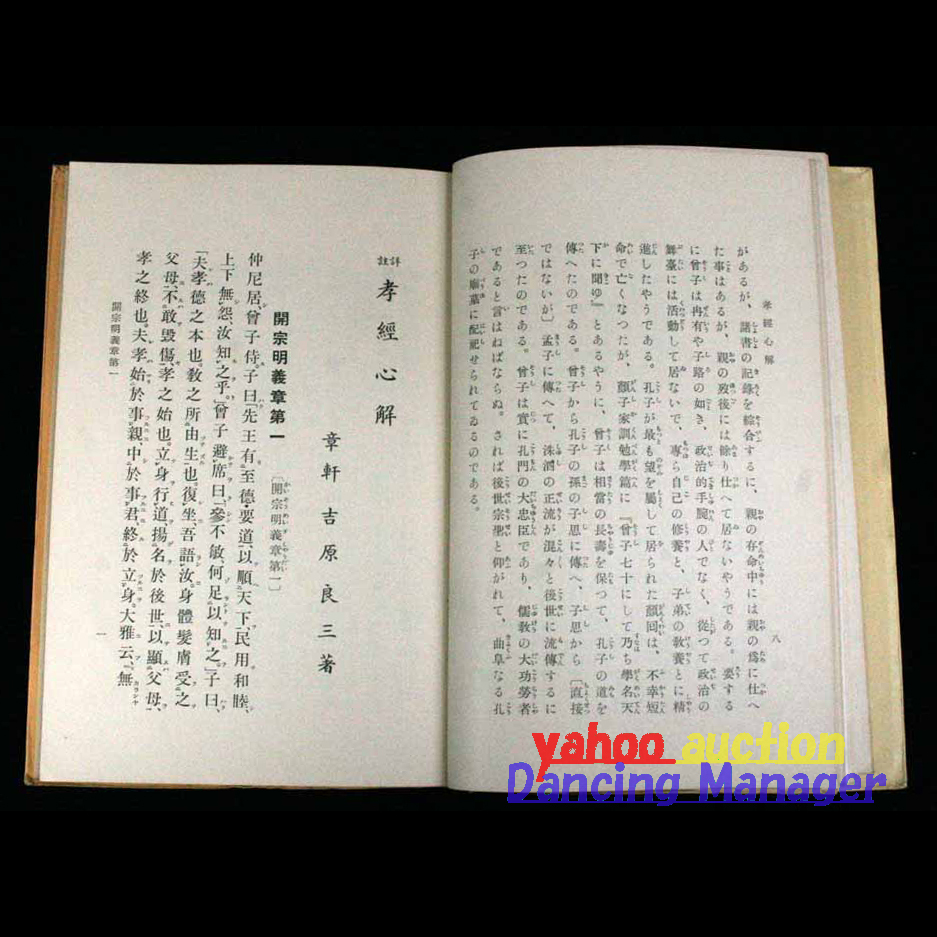 孝經心解
八
があるが、諸書の記錄を綜合するに、親の存命中には親の爲に仕へ
た事はあるが、親の歿後には餘り仕へて居ないやうである。要する
に曾子は冉有や子路の如き、政治的手腕の人でなく、從つて政治の
舞臺には活動して居ないで、專ら自己の修養と、子弟の敎養とに精
進したやうである。孔子が最も望を屬して居られた顏回は、不幸短
命で亡くなつたが、顏子家訓勉學篇に『曾子七十にして乃ち學名天
下に聞ゆ』とあるやうに、曾子は相當の長壽を保つて、孔子の道を
傳へたのである。曾子から孔子の孫の子思に傳へ、子思から〔直接
ではないが〕孟子に傳へて、洙泗の正流が混々と後世に流傳するに
至つたのである。曾子は實に孔門の大忠臣であり、儒敎の大功勞者
であると言はねばならぬ。されば後世宗聖と仰がれて、曲阜なる孔
子の廟墓に配祀せられてゐるのである。
詳註 孝經心解
章軒吉原良三著
開宗明義章第一〔開宗明義章第一〕
仲尼居、曾子侍。子曰「先王有至德要道、以順天下、民用和睦、
上下無怨、汝知之乎。」曾子避席曰、「參不敏、何足以知之。」子曰、
「夫孝德之本也。敎之所由生也。復坐吾語汝。身體髮膚受之
父母、不敢毀傷、孝之始也。立身行道、揚名於後世、以顯父母、
孝之終也。夫孝始於事親、中於事君、終於立身。大雅云、『無
開宗明義章第一
一
yahoo auction
Dancing Manager